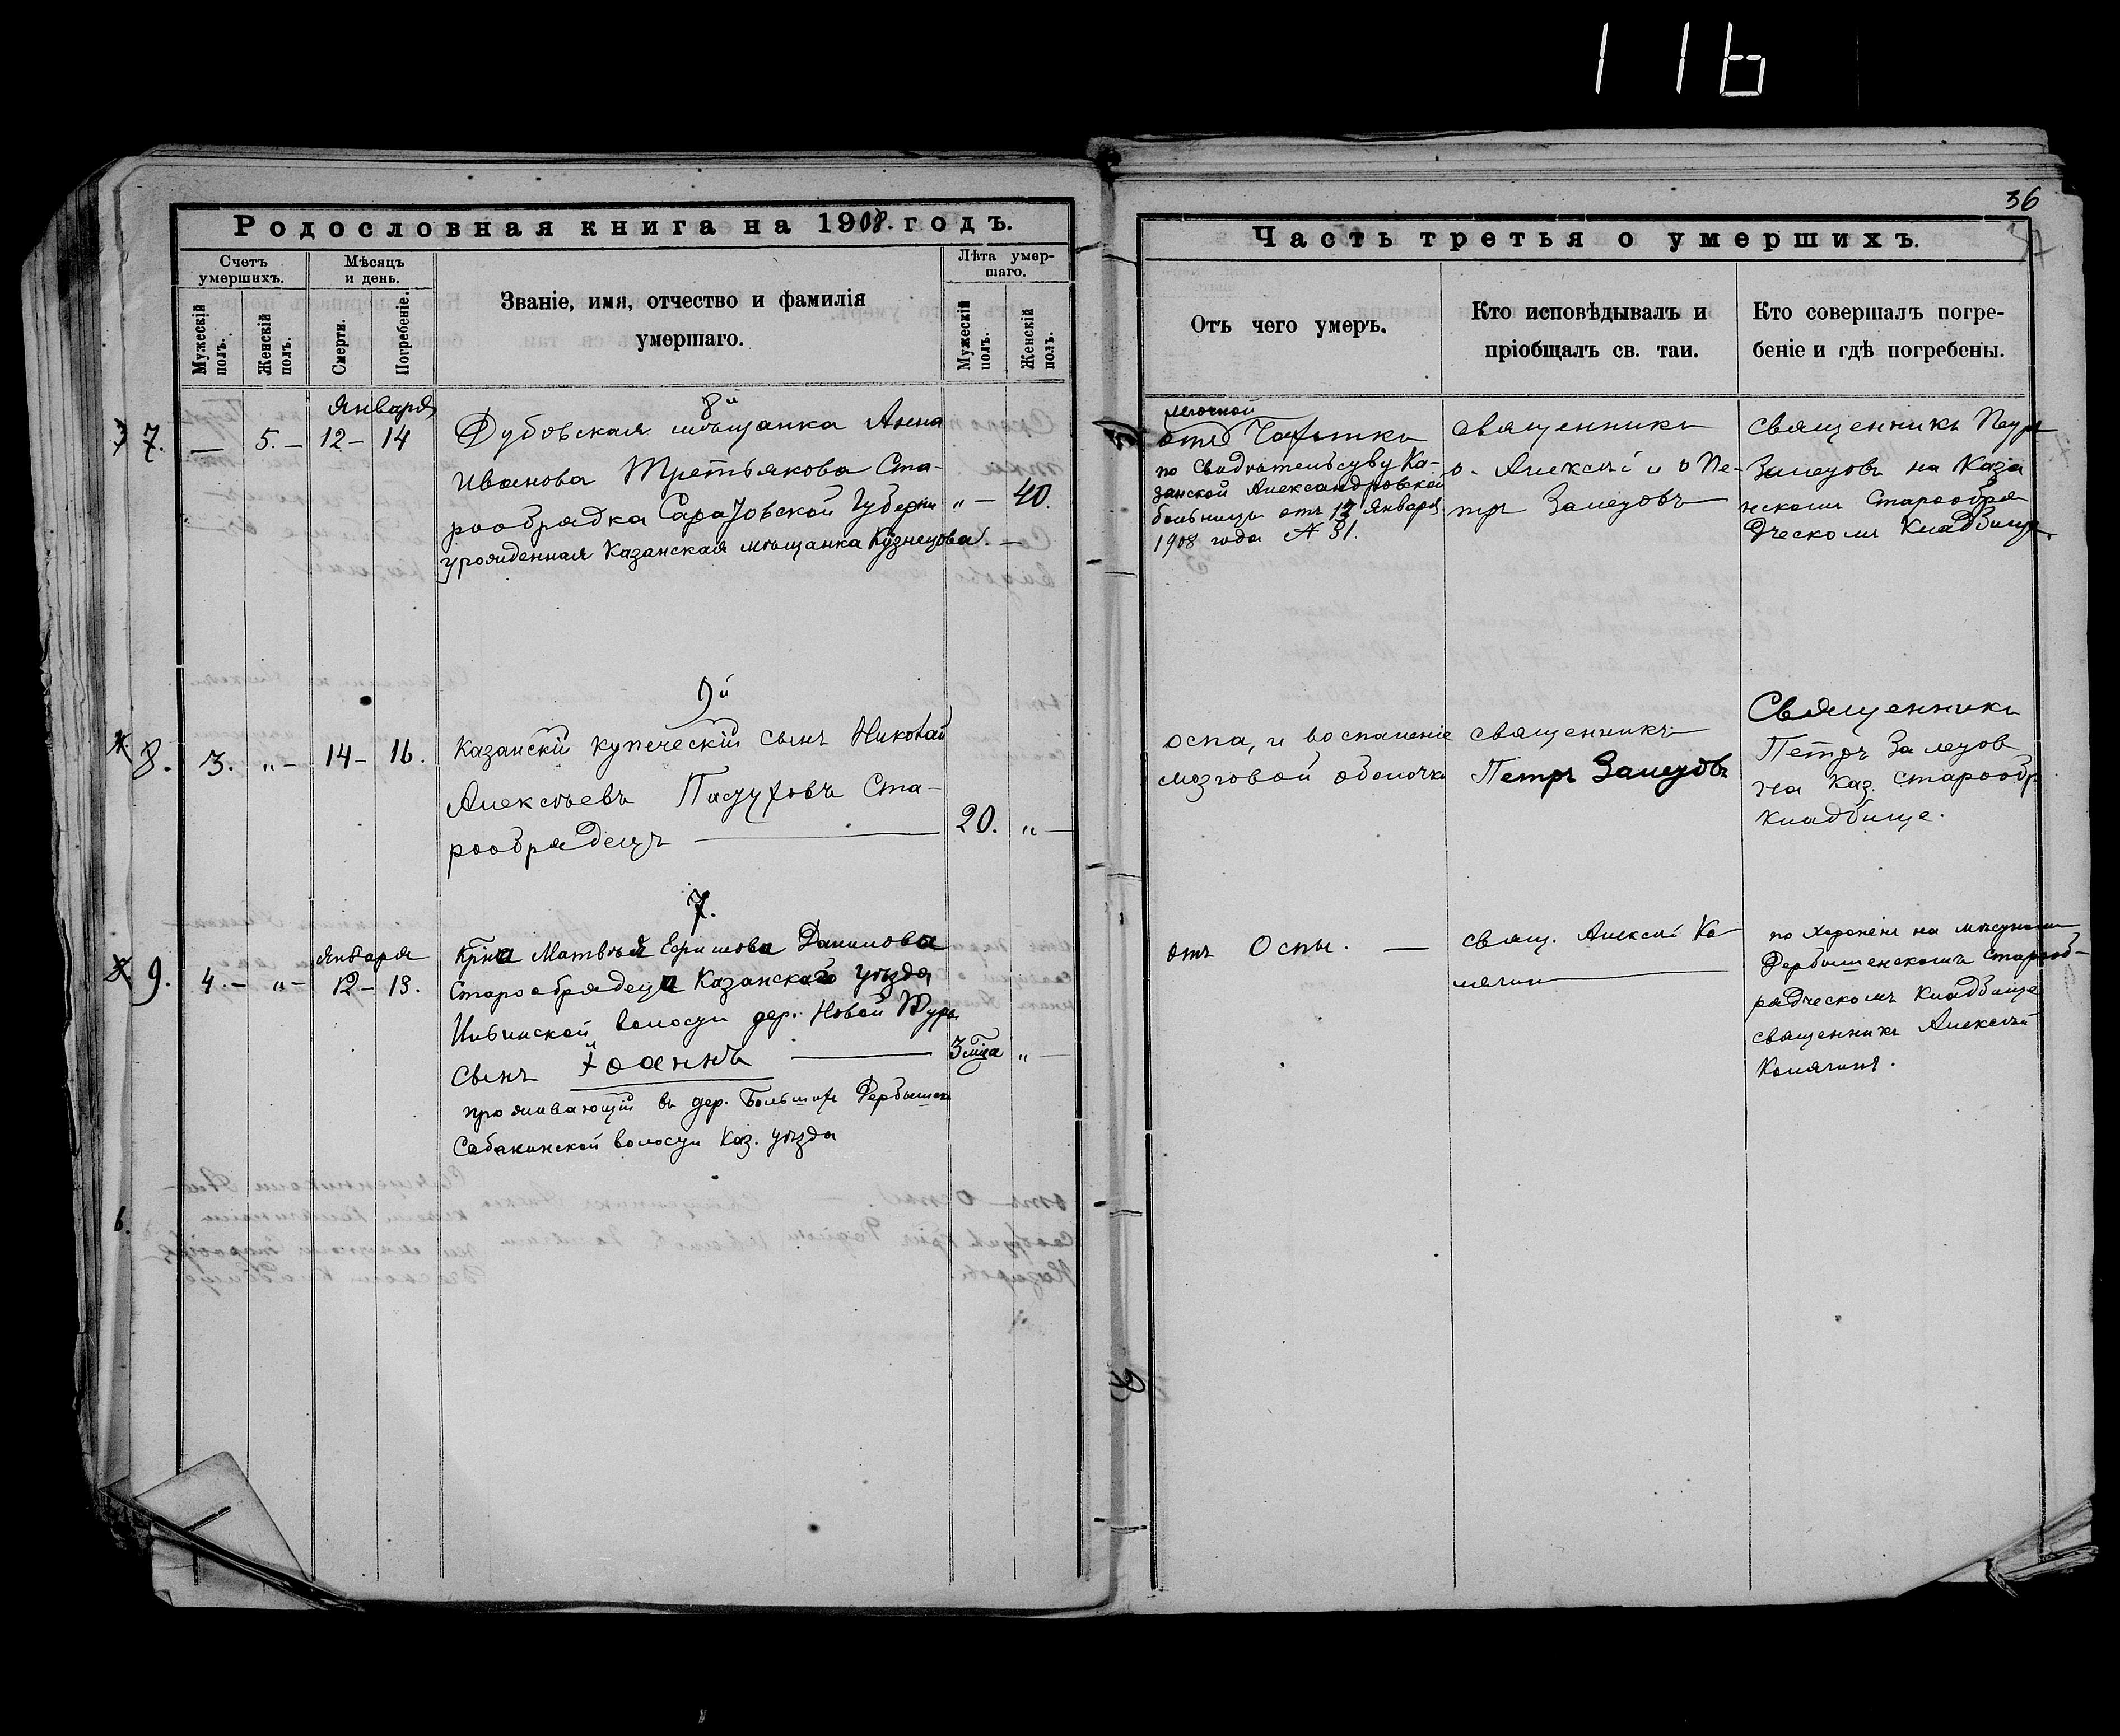 116
36
37
Родословная книга на 1908. годъ.
Счетъ умершихъ.
Мѣсяцъ и день.
Званіе, имя, отчество и фамилія
умершаго.
Лѣта умер-
шаго.
Мужескій полъ.
Женскій полъ.
Смерти.
Погребеніе.
Мужескій полъ.
Женскій полъ.
Января
8й
7. — 5.— 12— 14
Дубовская мѣщанка Анна
Иванова Третьякова Ста-
рообрядка Саратовской Губерни „— 40.
урожденная Казанская мѣщанка Кузнецова. —
9й
8. 3. „— 14— 16.
Казанскій купеческій сынъ Николай
Алексѣевъ Пастуховъ Ста-
рообрядецъ — 20. „—
7.
Января
9. 4.— „— 12— 13.
Крна Матвѣя Ефимова Данилова
Старообрядца Казанскаго уѣзда
Ильинской волости дер. Новой Туры
сынъ Іоаннъ — 3 мца „—
проживающій въ дер. Большихъ Дербышки
Собакинской волости Каз. уѣзда
6.
Часть третья о умершихъ.
Отъ чего умеръ.
Кто исповѣдывалъ и
пріобщалъ св. таи.
Кто совершалъ погре-
беніе и гдѣ погребены.
легочной
отъ Чахотки
по Свидѣтельству Ка-
занской Александровской
больницы отъ 12 Января
1908 года № 31.
священники
о. Алексѣй и о Пе-
тръ Залетовъ
священникъ Петръ
Залетовъ на Каза
нскомъ Старообря
дческомъ Кладбище.
оспа, и воспаленіе
мозговой оболочки
священникъ
Петръ Залетовъ
Священникъ
Петръ Залетов
на Каз. старообр
кладбище.
отъ Оспы. —
свящ. Алексѣй Ка
лягин
похоронен на мѣстномъ
Дербышенскомъ старооб-
рядческомъ кладбище
священникъ Алексѣй
Калягинъ.